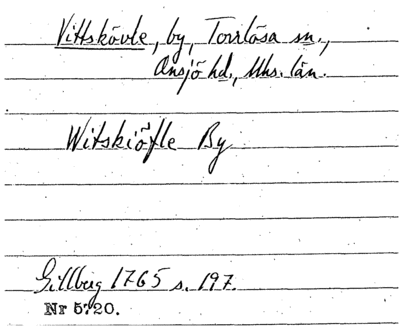 Vittskövle, by, Torrlösa sn.,
Onsjö hd., Mhs. län.
Witskiöfle By
Gillberg 1765 s. 197.
Nr 5720.